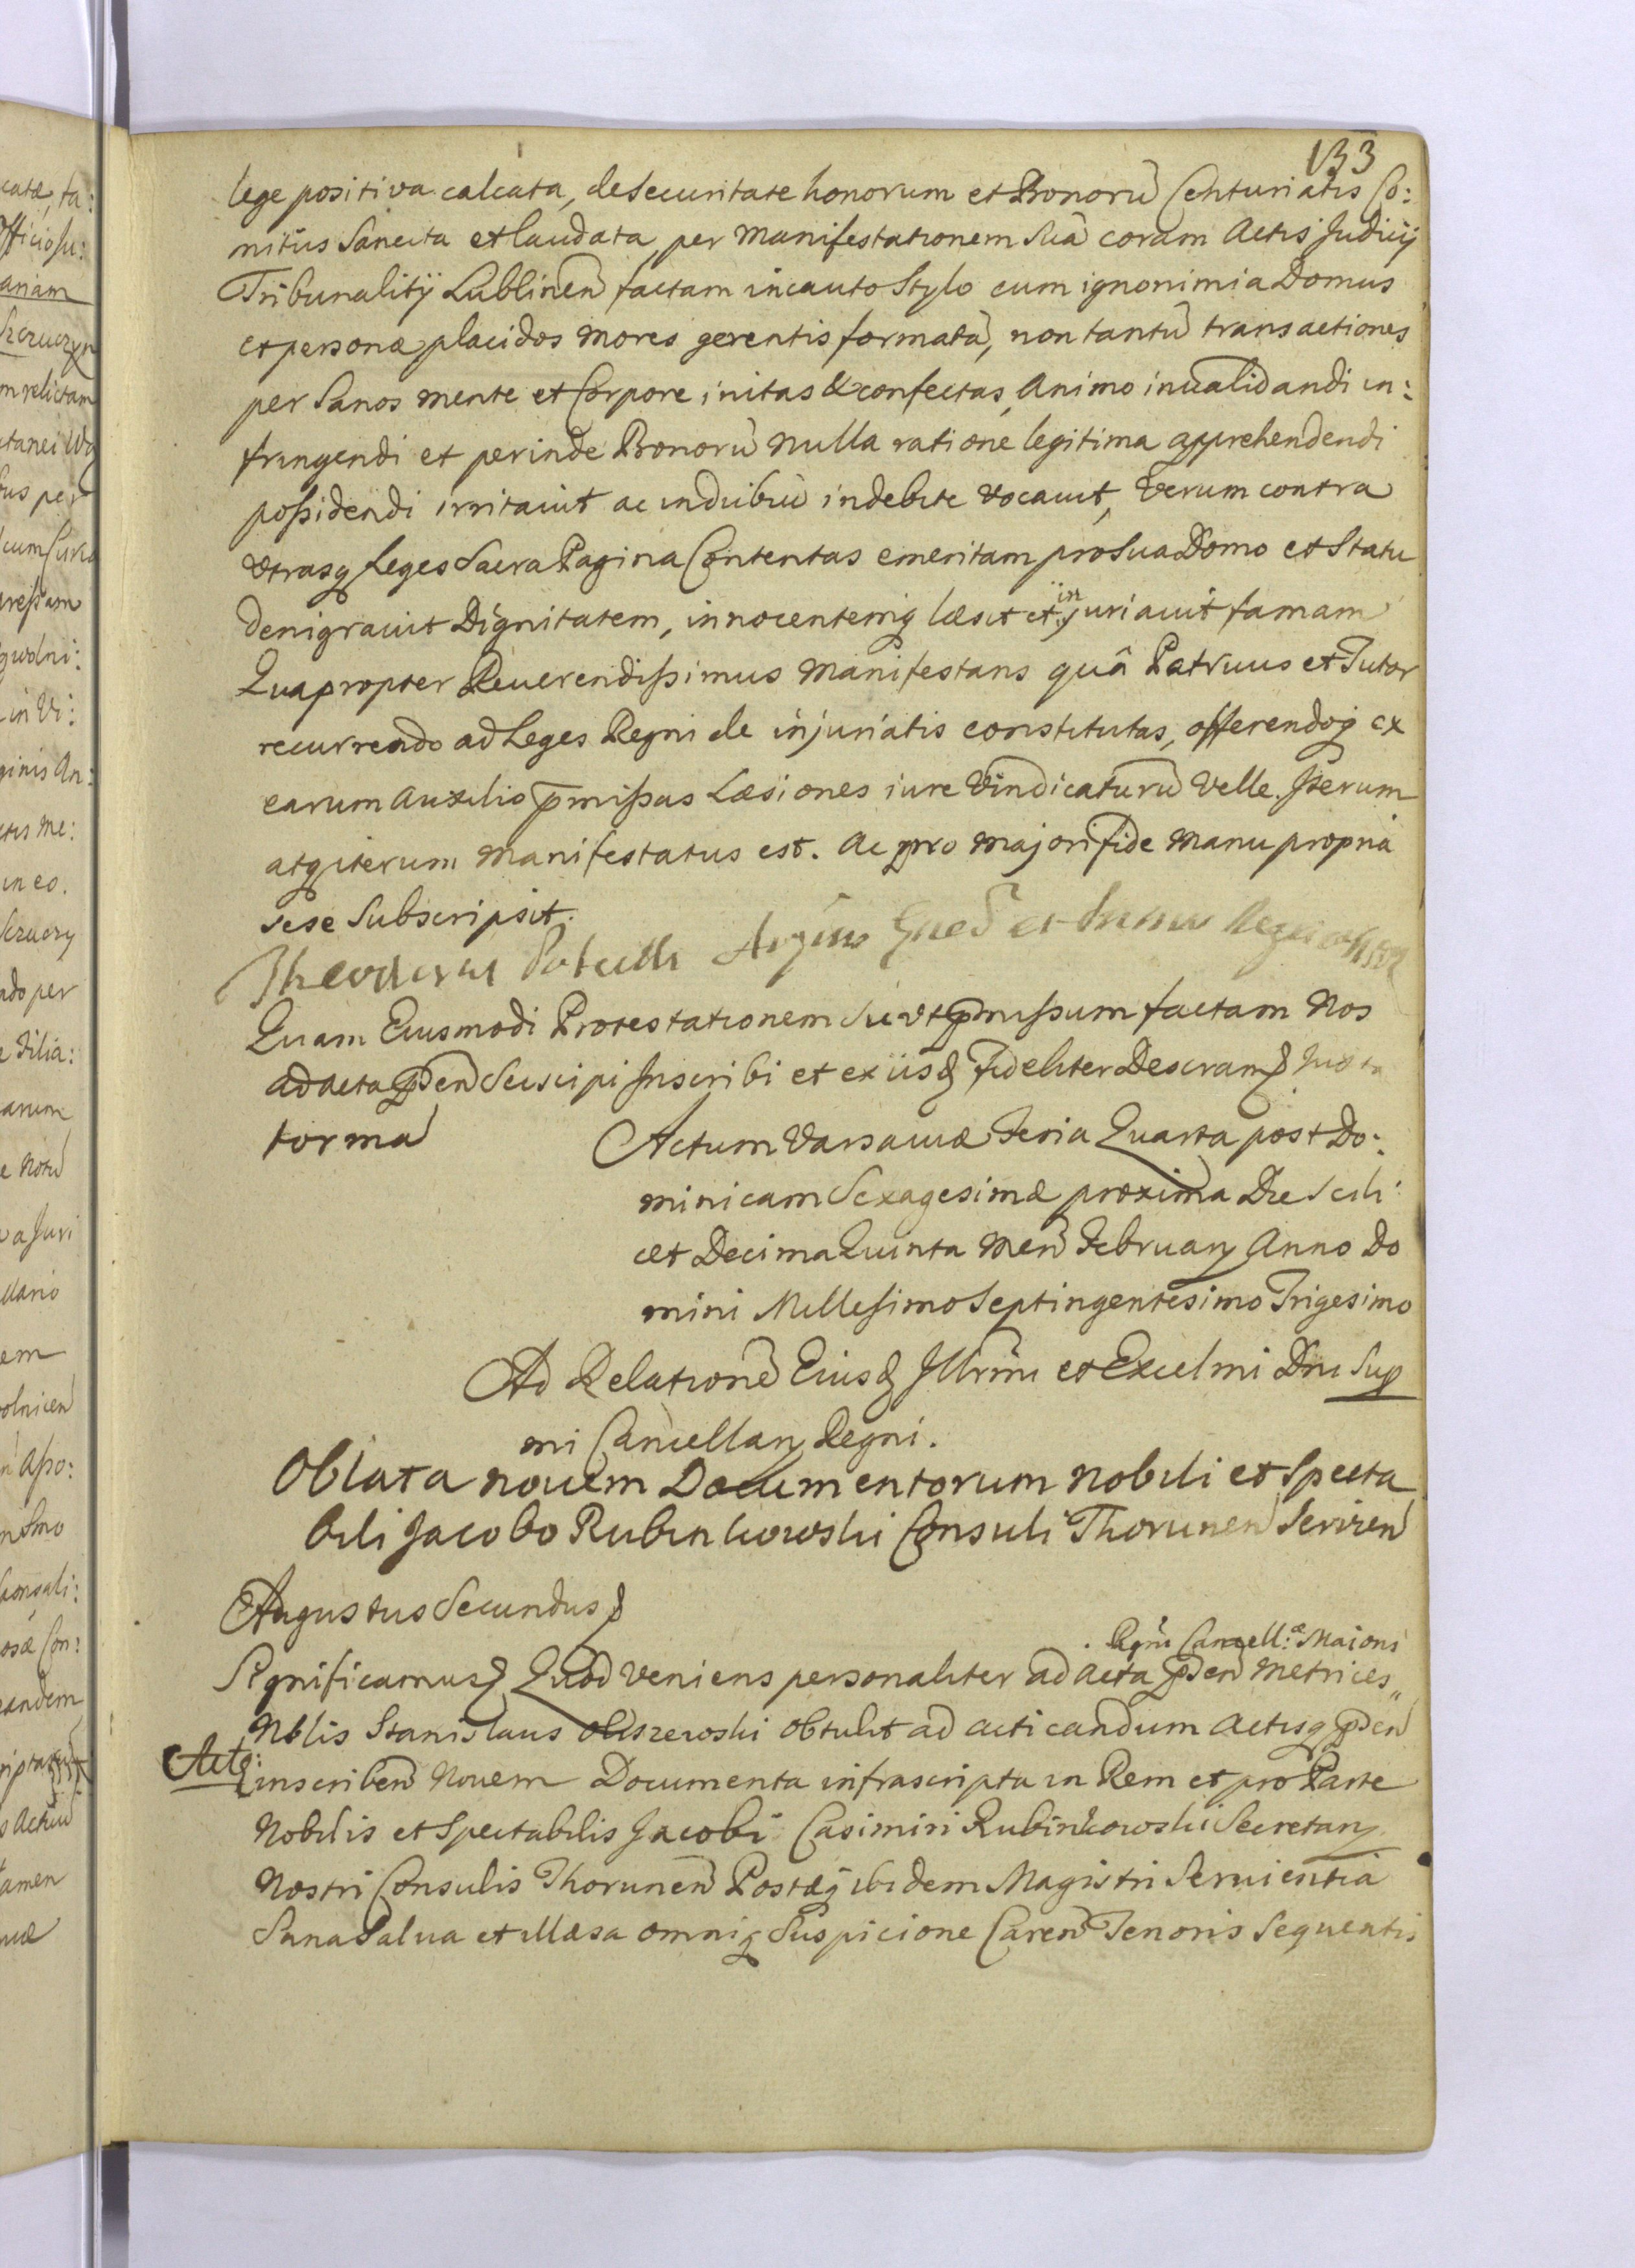 133
lege positiva calcata, de securitate honorum et Bonorũ Centuriatis Co:
mitijs Sancita et laudata, per Manifestationem Suã coram Actis Judicij
Tribunalitij Lublinen factam incauto Stylo cum ignonimia Domus
et personæ placidos mores gerentis formatã, non tantũ transactiones
per Sanos mente et Corpore initas & confectas, Animo invalidandi in:
fringendi et perinde Bonorũ nulla ratione legitima apprehendendi
possidendi irritavit ac in dubiũ indebite vocavit, Verum contra
Utrasq Leges Sacra Pagina Contentas emeritam pro Sua Domo et Statu
denigravit Dignitatem, innocentemq læsit et injuriavit famam
Quapropter Reverendissimus Manifestans quâ Patruus et Tutor
recurrendo ad Leges Regni de injuriatis constitutas, offerendoq ex
earum Auxilio pmissas Læsiones iure Vindicaturũ Velle. Iterum
atq iterum Manifestatus est. Ac pro majori fide Manu propria
sese Subscripsit.
Theodorus Potocki
Quam Eiusmodi Protestationem Sic ut pmissum factam Nos
ad acta pden Suscipi Inscribi et ex iisd Fideliter Descram Juxta
forma
Actum Varsaviæ Feria Quarta post Do:
minicam Sexagesimæ proxima Die Scili
cet Decima Quinta Men Februarij Anno Do
mini Millesimo Septingentesimo Trigesimo
Ad Relationẽ Eiusd Illrmi et Excelmi Dni Sup
mi Cancellarij Regni.
Oblata novem Documentorum Nobili et Specta
bili Jacobo Rubinkowski Consuli Thorunen Servien
Augustus Secundus
Regni Cancell:æ Maioris
Significamus Quod Veniens personaliter ad Acta pden Metrices
Nblis Stanislaus Olszewski obtulit ad acticandum Actisq pden
Acte:
inscriben Novem Documenta infrascripta in Rem et pro Parte
Nobilis et Spectabilis Jacobi Casimiri Rubinkowski Secretarij
Nostri Consulis Thorunen Postæq ibidem Magistri Servientia
Sana Salva et illæsa omniq Suspicione Caren Tenoris Sequentis